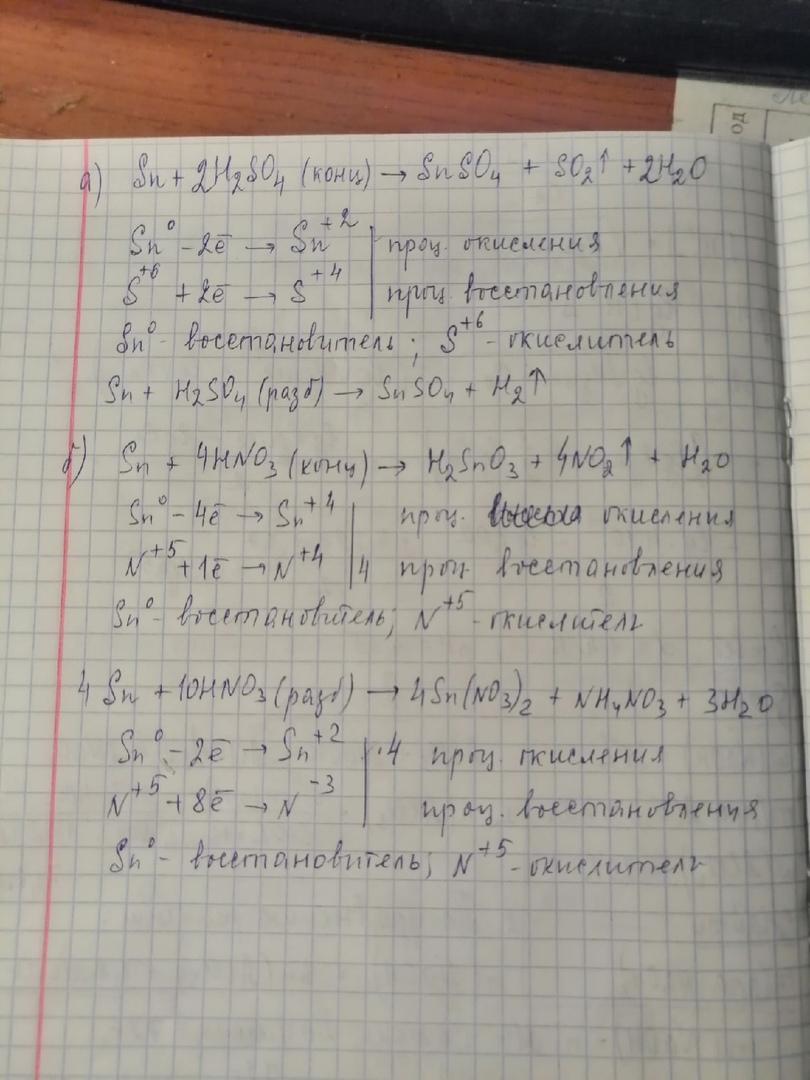 од
а) Sn + 2H₂SO₄ (конц) → SnSO₄ + SO₂↑ + 2H₂O
Sn⁰ - 2ē → Sn⁺² | проц. окисления
S⁺⁶ + 2ē → S⁺⁴ | проц. восстановления
Sn⁰ - восстановитель; S⁺⁶ - окислитель
Sn + H₂SO₄ (разб) → SnSO₄ + H₂↑
б) Sn + 4HNO₃ (конц) → H₂SnO₃ + 4NO₂↑ + H₂O
Sn⁰ - 4ē → Sn⁺⁴ | проц. окисления
N⁺⁵ + 1ē → N⁺⁴ | 4 проц. восстановления
Sn⁰ - восстановитель; N⁺⁵ - окислитель
4 Sn + 10HNO₃ (разб) → 4Sn(NO₃)₂ + NH₄NO₃ + 3H₂O
Sn⁰ - 2ē → Sn⁺² | ·4 проц. окисления
N⁺⁵ + 8ē → N⁻³ | проц. восстановления
Sn⁰ - восстановитель; N⁺⁵ - окислитель